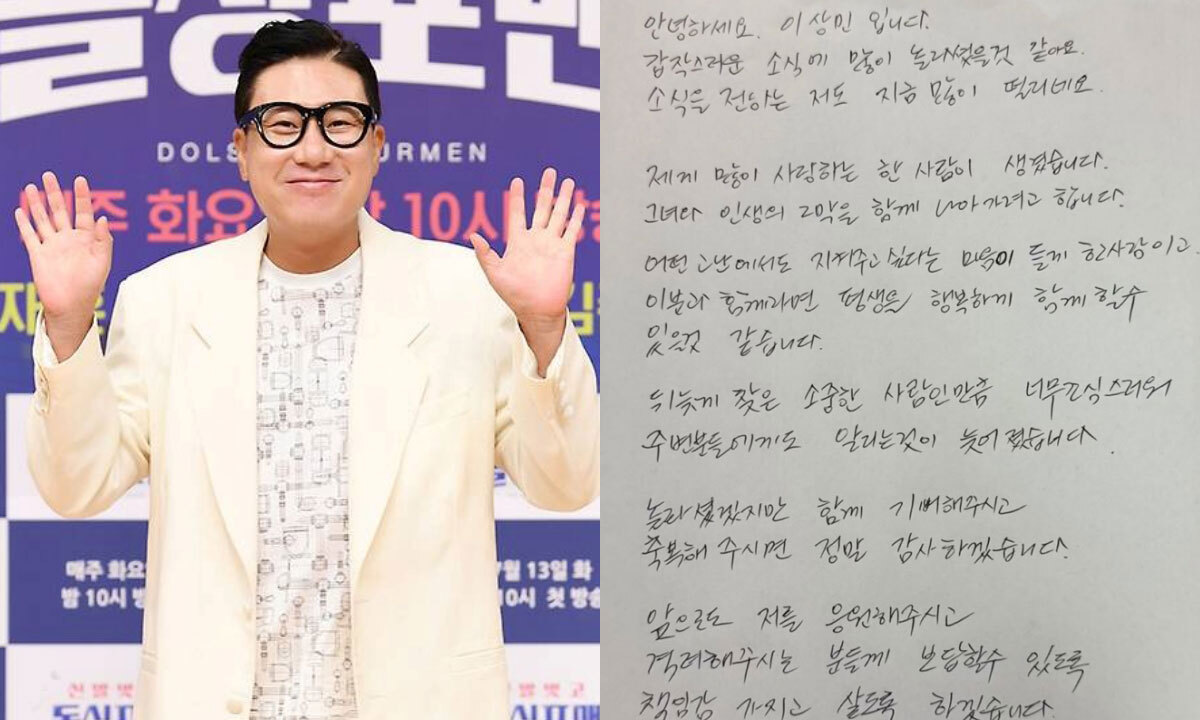 돌싱포맨
DOLS URMEN
매주 화요 10시 방송
재훈
김
매주 화요
밤 10시 방
7월 13일 화
10시 첫 방송
신발벗고
돌싱포맨
안녕하세요. 이상민 입니다.
갑작스러운 소식에 많이 놀라셨을것 같아요.
소식을 전하는 저도 지금 많이 떨리네요.
제게 많이 사랑하는 한 사람이 생겼습니다.
그녀와 인생의 2막을 함께 나아가려고 합니다.
어떤 고난에서도 지켜주고 싶다는 마음이 들게 한 사람이고
이분과 함께라면 평생을 행복하게 함께 할수
있을것 같습니다.
뒤늦게 찾은 소중한 사람인만큼 너무 조심스러워
주변분들에게도 알리는것이 늦어졌습니다.
놀라셨겠지만 함께 기뻐해주시고
축복해 주시면 정말 감사하겠습니다.
앞으로도 저를 응원해주시고
격려해주시는 분들께 보답할수 있도록
책임감 가지고 살도록 하겠습니다.